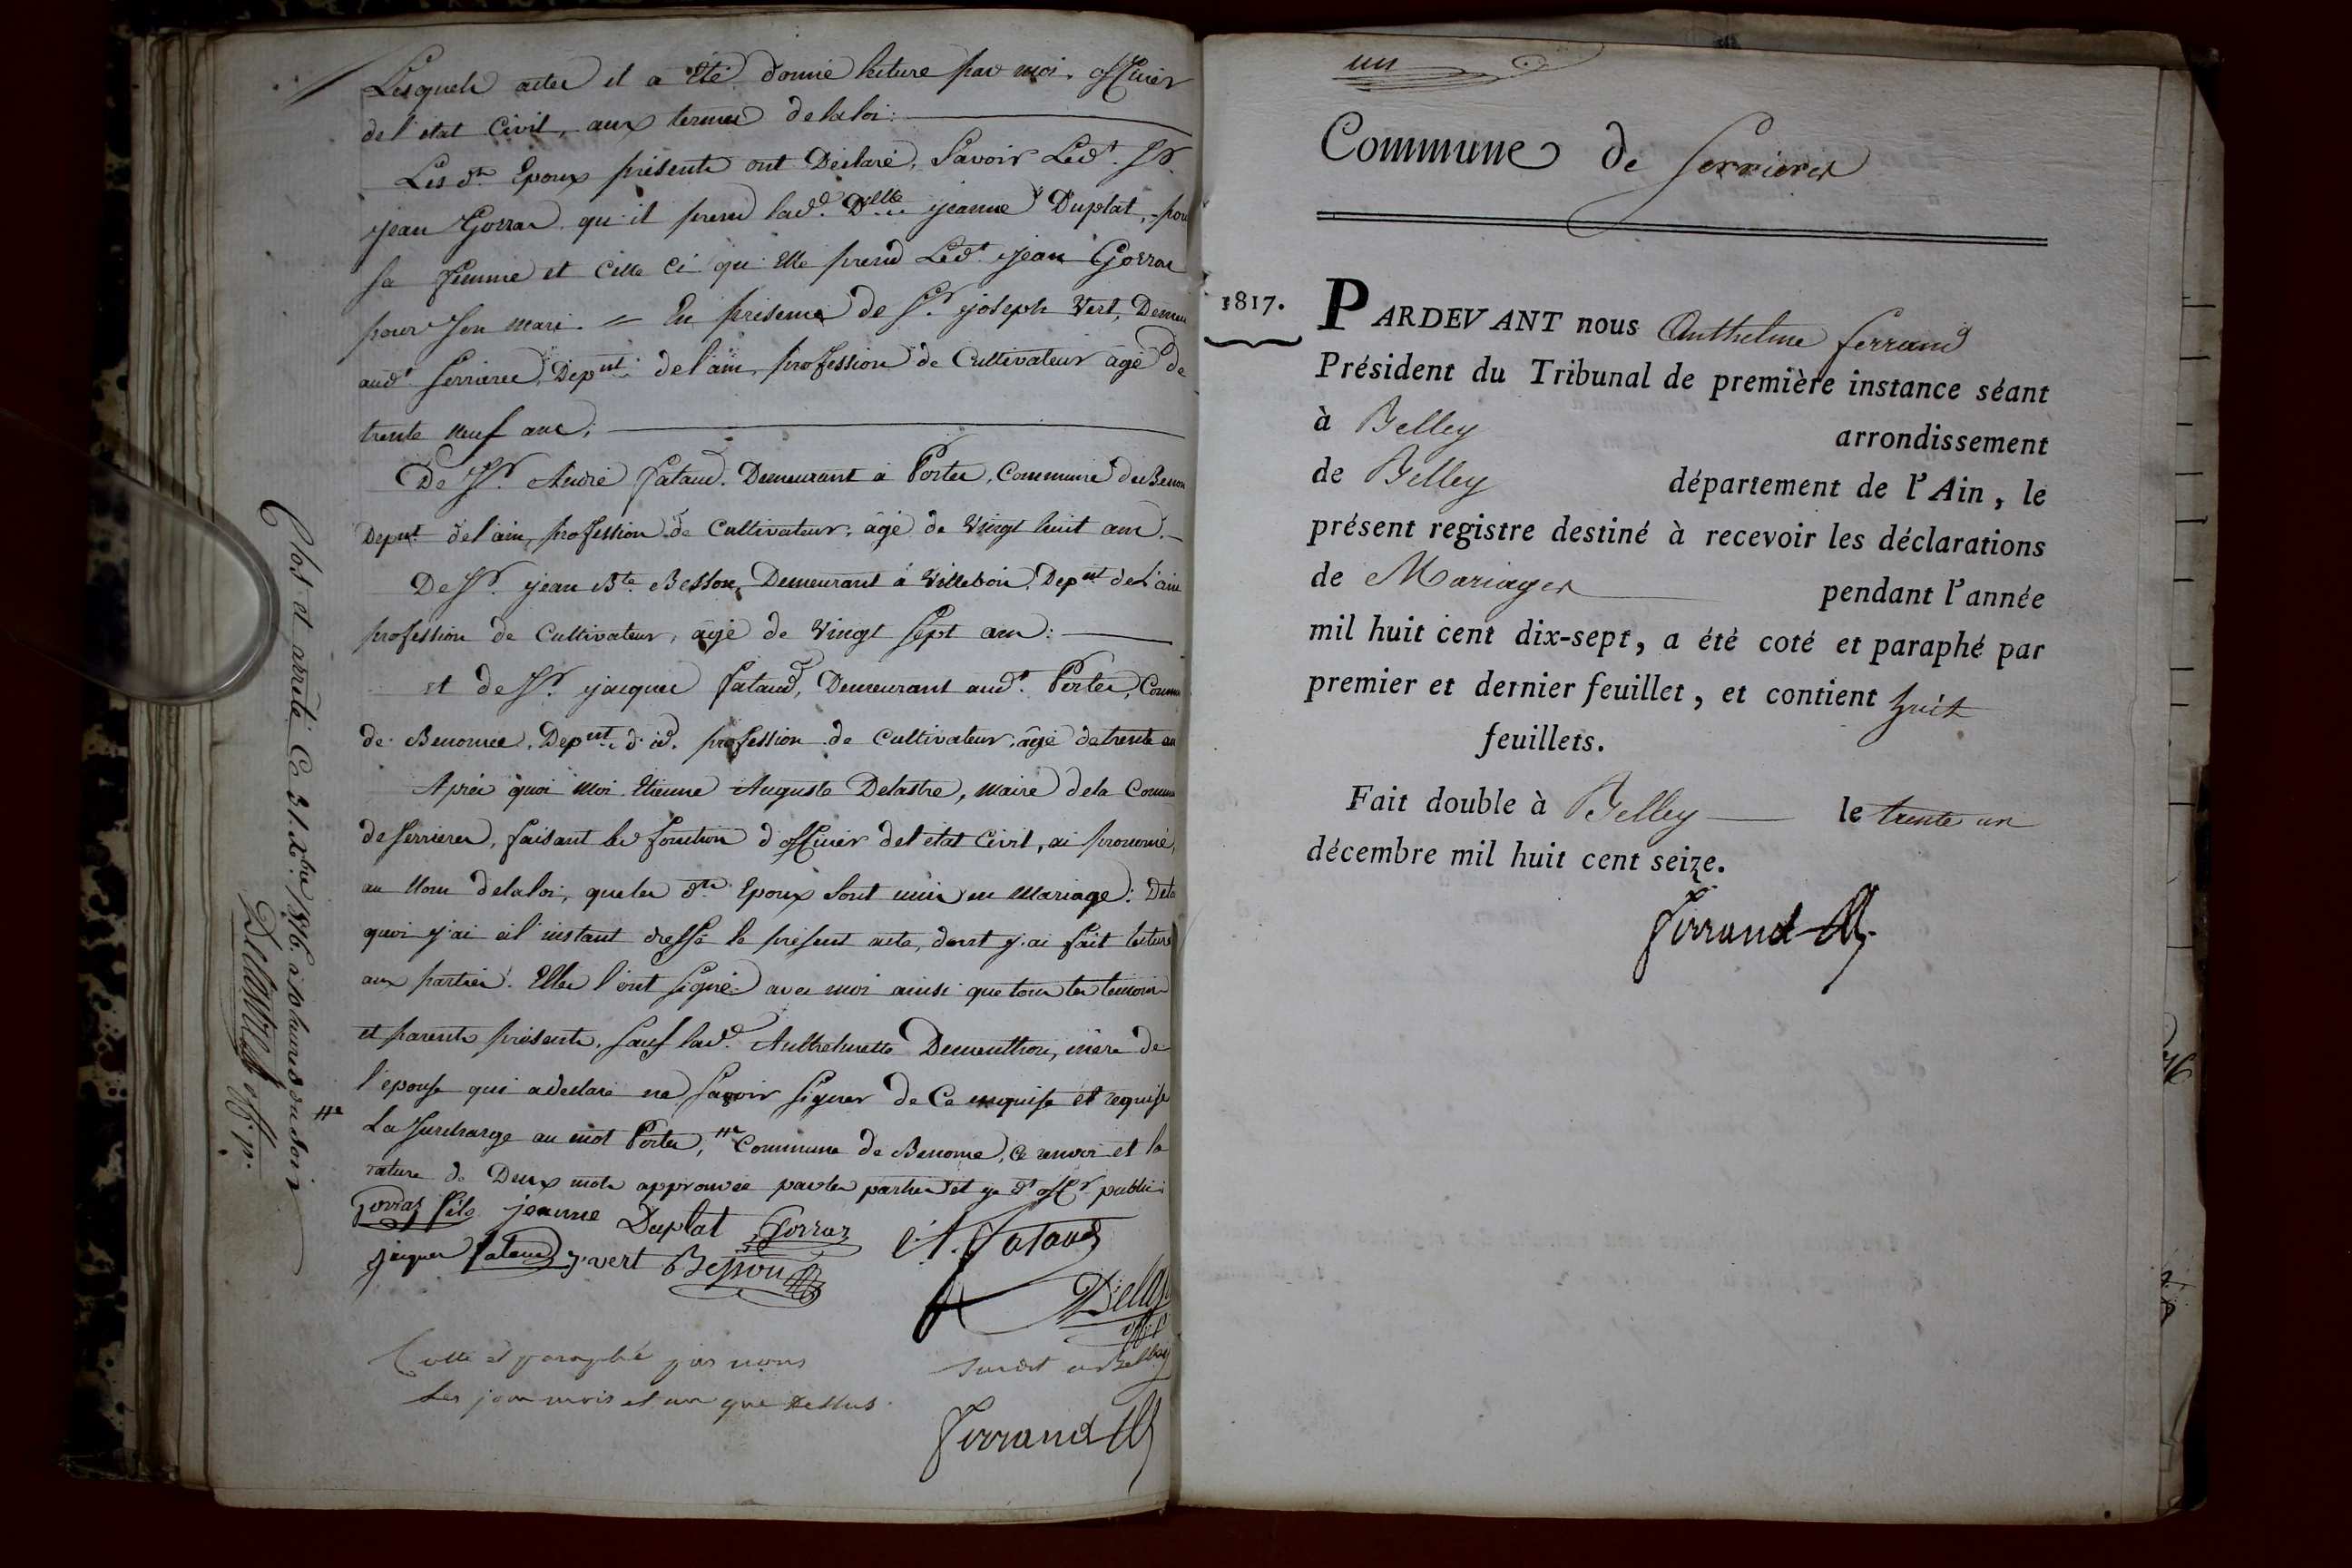 Lesquels actes il a été donné lecture par moi, officier
de l'état Civil, aux termes de la loi:
Les dts Epoux présents ont Déclaré, Savoir Ledt. Sr.
jean Gorraz qu'il prend lade. Delle jeanne Duplat, pour
sa femme et Celle Ci qu'Elle prend Ledt. jean Gorraz
pour Son mari. = En présence de Sr. joseph Vert, Demeu
audt. Serrieres, Depnt. de l'ain, profession de Cultivateur âgé de
trente neuf ans;
De Sr. André fataud. Demeurant à Portes, Commune de Benon
Depnt de l'ain, profession de Cultivateur, âgé de Vingt huit ans.
De Sr. jean Bte. Besson, Demeurant à Villebois, Depnt de l'ain
profession de Cultivateur, âgé de Vingt Sept ans:
et de Sr. jacques fataud, Demeurant audt. Portes, Comm
de Benonce, Depnt. d'id. profession de Cultivateur, âgé de trente an
Après quoi moi Etienne Auguste Delastre, maire de la Commu
de Serrieres, faisant les fonction d'officier de l'état Civil, ai prononcé,
au Nom de la loi, que les dts. Epoux Sont unis en Mariage: De la
quoi j'ai à l'instant dressé le présent acte, dont j'ai fait lecture
aux parties. Elles l'ont Signé avec moi ainsi que tous les temoins
et parents présents, Sauf lade. Anthelmette Dementhon, mère de
l'épouse qui a déclaré ne Savoir Signer de Ce enquise et requise
La Surcharge au mot Portes, Commune de Benonce, Ce renvoi et la
rature de Deux mots approuvée par les parties et je dt offr public
Gorraz fils jeanne Duplat Gorraz A. fataud
jaques fataud j. vert Besson
Delas
off. p
Cotté et paraphé par nous susdit a Belley
les jour mois et an que dessus.
Ferrand
Clos et arrêté Ce 31. Xbre 1816. à 10 heures du Soir
Delastre off. p.
un
Commune de Serrieres
1817.
PARDEVANT nous Anthelme ferrand
Président du Tribunal de première instance séant
à Belley arrondissement
de Belley département de l'Ain, le
présent registre destiné à recevoir les déclarations
de Mariages pendant l'année
mil huit cent dix-sept, a été coté et paraphé par
premier et dernier feuillet, et contient huit
feuillets.
Fait double à Belley le trente un
décembre mil huit cent seize.
Ferrand